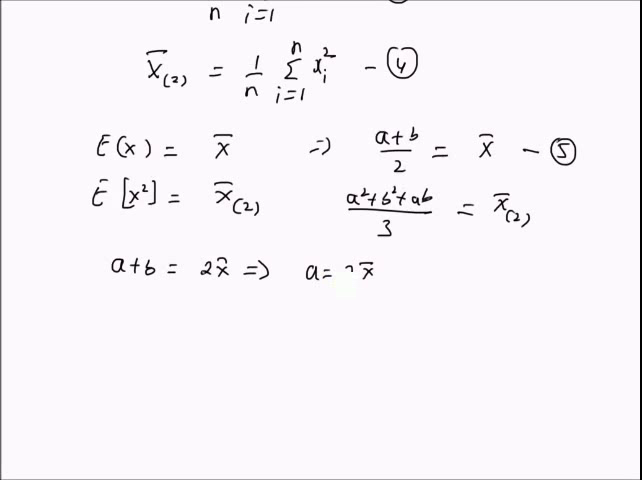 n i=1
x̄(2) = 1/n Σ i=1 n xi² - ④
E(x) = x̄ => a+b/2 = x̄ - ⑤
E[x²] = x̄(2) a²+b²+ab/3 = x̄(2)
a+b = 2x̄ => a = 2x̄